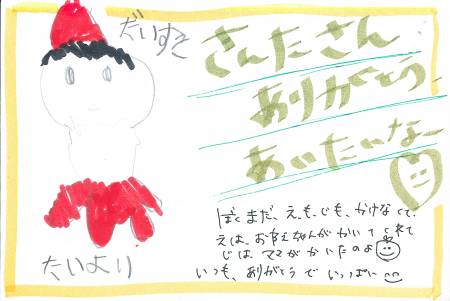 だいすき
さんたさん
ありがとう
あいたいなー
ぼくまだ、え、も、じも、かけなくて、
えは、お友えちゃんがかいてくれて
じは ママがかいたのよ
いつも、ありがとうで いっぱい
たいより